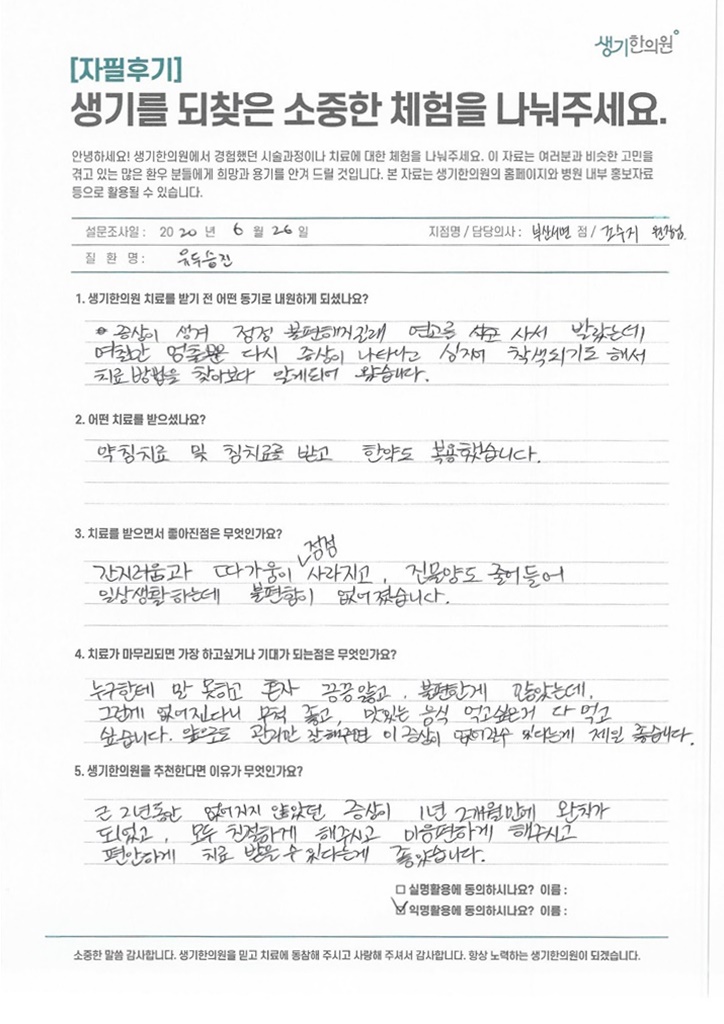 생기한의원
[자필후기]
생기를 되찾은 소중한 체험을 나눠주세요.
안녕하세요! 생기한의원에서 경험했던 시술과정이나 치료에 대한 체험을 나눠주세요. 이 자료는 여러분과 비슷한 고민을
겪고 있는 많은 환우 분들에게 희망과 용기를 안겨 드릴 것입니다. 본 자료는 생기한의원의 홈페이지와 병원 내부 홍보자료
등으로 활용될 수 있습니다.
설문조사일 : 20 20 년 6 월 26 일 지점명 / 담당의사 : 부산서면 점 / 원장님.
질 환 명 : 유두습진
1. 생기한의원 치료를 받기 전 어떤 동기로 내원하게 되셨나요?
증상이 생겨 점점 불편해지길래 연고를 사서 발랐는데
다시 증상이 나타나고 심지어 착색되기도 해서
치료 방법을 찾아보다 알게되어 왔습니다.
2. 어떤 치료를 받으셨나요?
약침치료 및 침치료를 받고 한약도 복용했습니다.
3. 치료를 받으면서 좋아진점은 무엇인가요?
간지러움과 따가움이 점점 사라지고, 진물양도 줄어들어
일상생활하는데 불편함이 없어졌습니다.
4. 치료가 마무리되면 가장 하고싶거나 기대가 되는점은 무엇인가요?
누구한테 말 못하고 혼자 끙끙앓고, 불편한게 많았는데,
그런게 없어진다니 무척 좋고, 맛있는 음식 먹고싶은거 다 먹고
싶습니다. 앞으로도 관리만 잘해주면 이 증상이 없어질수 있다는게 제일 좋습니다.
5. 생기한의원을 추천한다면 이유가 무엇인가요?
근 2년동안 없어지지 않았던 증상이 1년 2개월만에 완치가
되었고, 모두 친절하게 해주시고 마음편하게 해주시고
편안하게 치료 받을 수 있다는게 좋았습니다.
□ 실명활용에 동의하시나요? 이름 :
☑ 익명활용에 동의하시나요? 이름 :
소중한 말씀 감사합니다. 생기한의원을 믿고 치료에 동참해 주시고 사랑해 주셔서 감사합니다. 항상 노력하는 생기한의원이 되겠습니다.